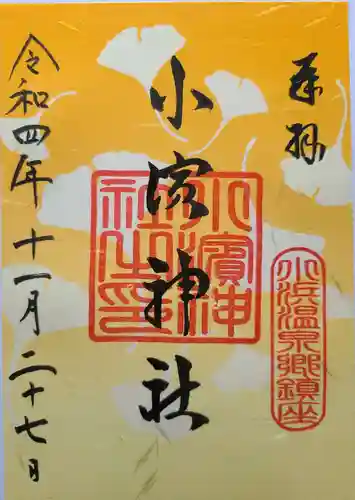 奉拝
小浜温泉郷鎮座
小濱神社
小濱神社之印
令和四年十一月二十七日